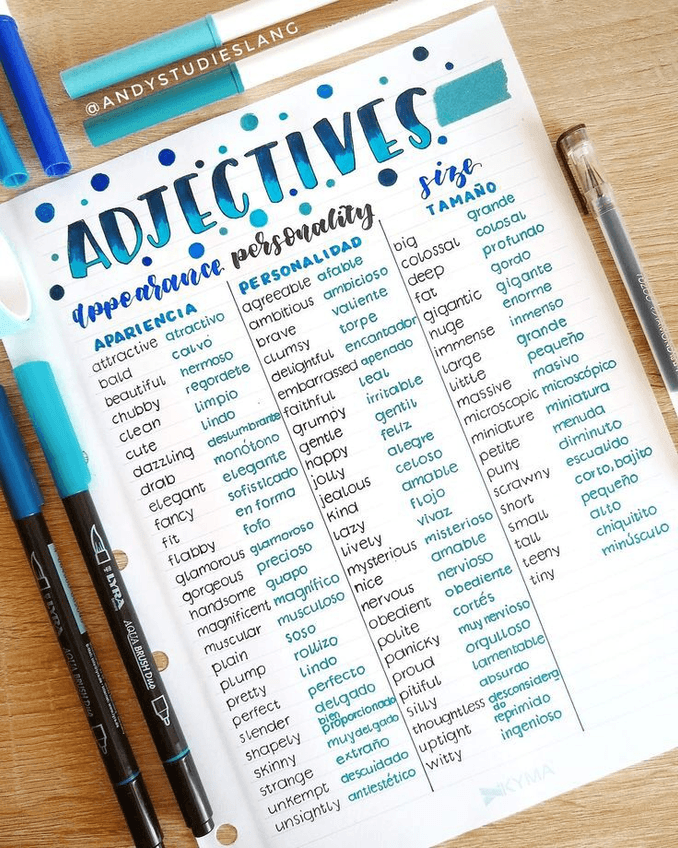 @ANDYSTUDIESLANG
ADJECTIVES
appearance
APARIENCIA
attractive atractivo
bald calvo
beautiful hermoso
chubby regordete
clean limpio
cute lindo
dazzling deslumbrante
drab monótono
elegant elegante
fancy sofisticado
fit en forma
flabby fofo
glamorous glamoroso
gorgeous precioso
handsome guapo
magnificent magnífico
muscular musculoso
plain soso
plump rollizo
pretty lindo
perfect perfecto
slender delgado
shapely bien proporcionado
skinny muy delgado
strange extraño
unkempt descuidado
unsightly antiestético
personality
PERSONALIDAD
agreeable afable
ambitious ambicioso
brave valiente
clumsy torpe
delightful encantador
embarrassed apenado
faithful leal
grumpy irritable
gentle gentil
happy feliz
jolly alegre
jealous celoso
kind amable
lazy flojo
lively vivaz
mysterious misterioso
nice amable
nervous nervioso
obedient obediente
polite cortés
panicky muy nervioso
proud orgulloso
pitiful lamentable
silly absurdo
thoughtless desconsiderado
uptight reprimido
witty ingenioso
size
TAMAÑO
big grande
colossal colosal
deep profundo
fat gordo
gigantic gigante
huge enorme
immense inmenso
large grande
little pequeño
massive masivo
microscopic microscópico
miniature miniatura
petite menuda
puny diminuto
scrawny escualido
short corto, bajito
small pequeño
tall alto
teeny chiquitito
tiny minúsculo
KYMA
LYRA
AQUA BRUSH Duo
LYRA
AQUA BRUSH Duo